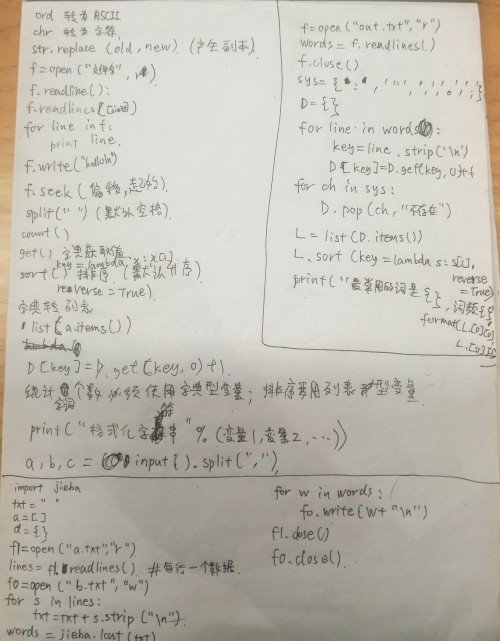 ord 转为 ASCII
chr 转为字符
str.replace (old, new) (产生副本)
f=open("文件名", r)
f.readline():
f.readlines
for line in f:
print line
f.write("hello\n")
f.seek (偏移, 起始)
split(" ") (默认空格)
count()
get() 字典获取值
key = lambda x: x[1]
sort() 排序 (默认升序)
reverse=True).
字典转列表
list(a.items())
D[key]=D.get(key,0)+1
统计个数必须使用字典型变量; 排序要用列表型变量
print("格式化字符串"%(变量1,变量2,...))
a,b,c = input().split(",")
f=open("out.txt","r")
words = f.readlines()
f.close()
sys={
D={}
for line in words:
key=line.strip('\n')
D[key]=D.get(key,0)+1
for ch in sys:
D.pop(ch,"不存在")
L = list(D.items())
L.sort(key=lambda s:s[1],
reverse
=True)
print("最常用的词是{},词频{}"
format(L[0][0],
L[0][1]
import jieba
txt = " "
a=[]
d={}
f1=open("a.txt","r")
lines=f1.readlines() #每行一个数据
fo=open("b.txt","w")
for s in lines:
txt=txt+s.strip("\n")
words = jieba.lcut(txt)
for w in words:
fo.write(w+"\n")
f1.close()
fo.close()